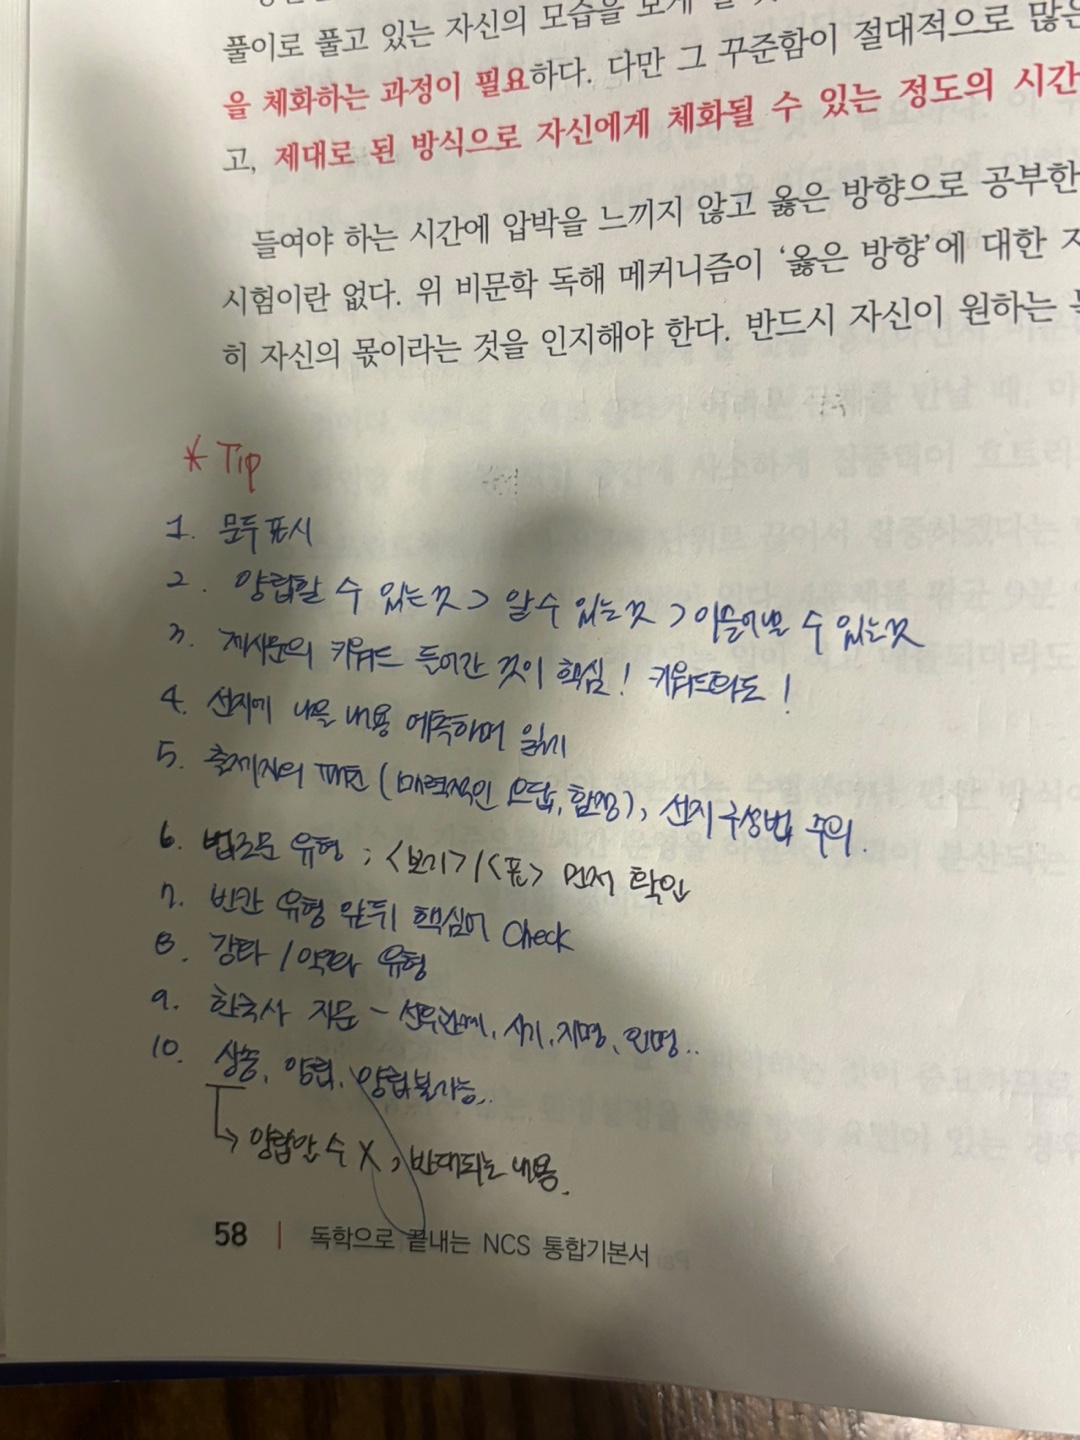 풀이로 풀고 있는 자신의 모습을
을 체화하는 과정이 필요하다. 다만 그 꾸준함이 절대적으로 많은
고, 제대로 된 방식으로 자신에게 체화될 수 있는 정도의 시간
들여야 하는 시간에 압박을 느끼지 않고 옳은 방향으로 공부한
시험이란 없다. 위 비문학 독해 메커니즘이 ‘옳은 방향’에 대한
히 자신의 몫이라는 것을 인지해야 한다. 반드시 자신이 원하는
* Tip
1. 문두 표시
2. 양립할 수 있는 것 > 알 수 있는 것 > 이끌어낼 수 있는 것
3. 제시문의 키워드 들어간 것이 핵심! 키워드화도!
4. 선지에 나올 내용 예측하며 읽기
5. 출제자의 패턴 (매력적인 오답, 함정), 선지 구성법 주의.
6. 법조문 유형 ; <보기>/<표> 먼저 확인
7. 빈칸 유형 앞뒤 핵심어 Check
8. 강화 / 약화 유형
9. 한국사 지문 - 선후관계, 시기, 지명, 인명..
10. 상충, 양립, 양립불가능..
→ 양립할 수 X, 반대되는 내용.
58 | 독학으로 끝내는 NCS 통합기본서